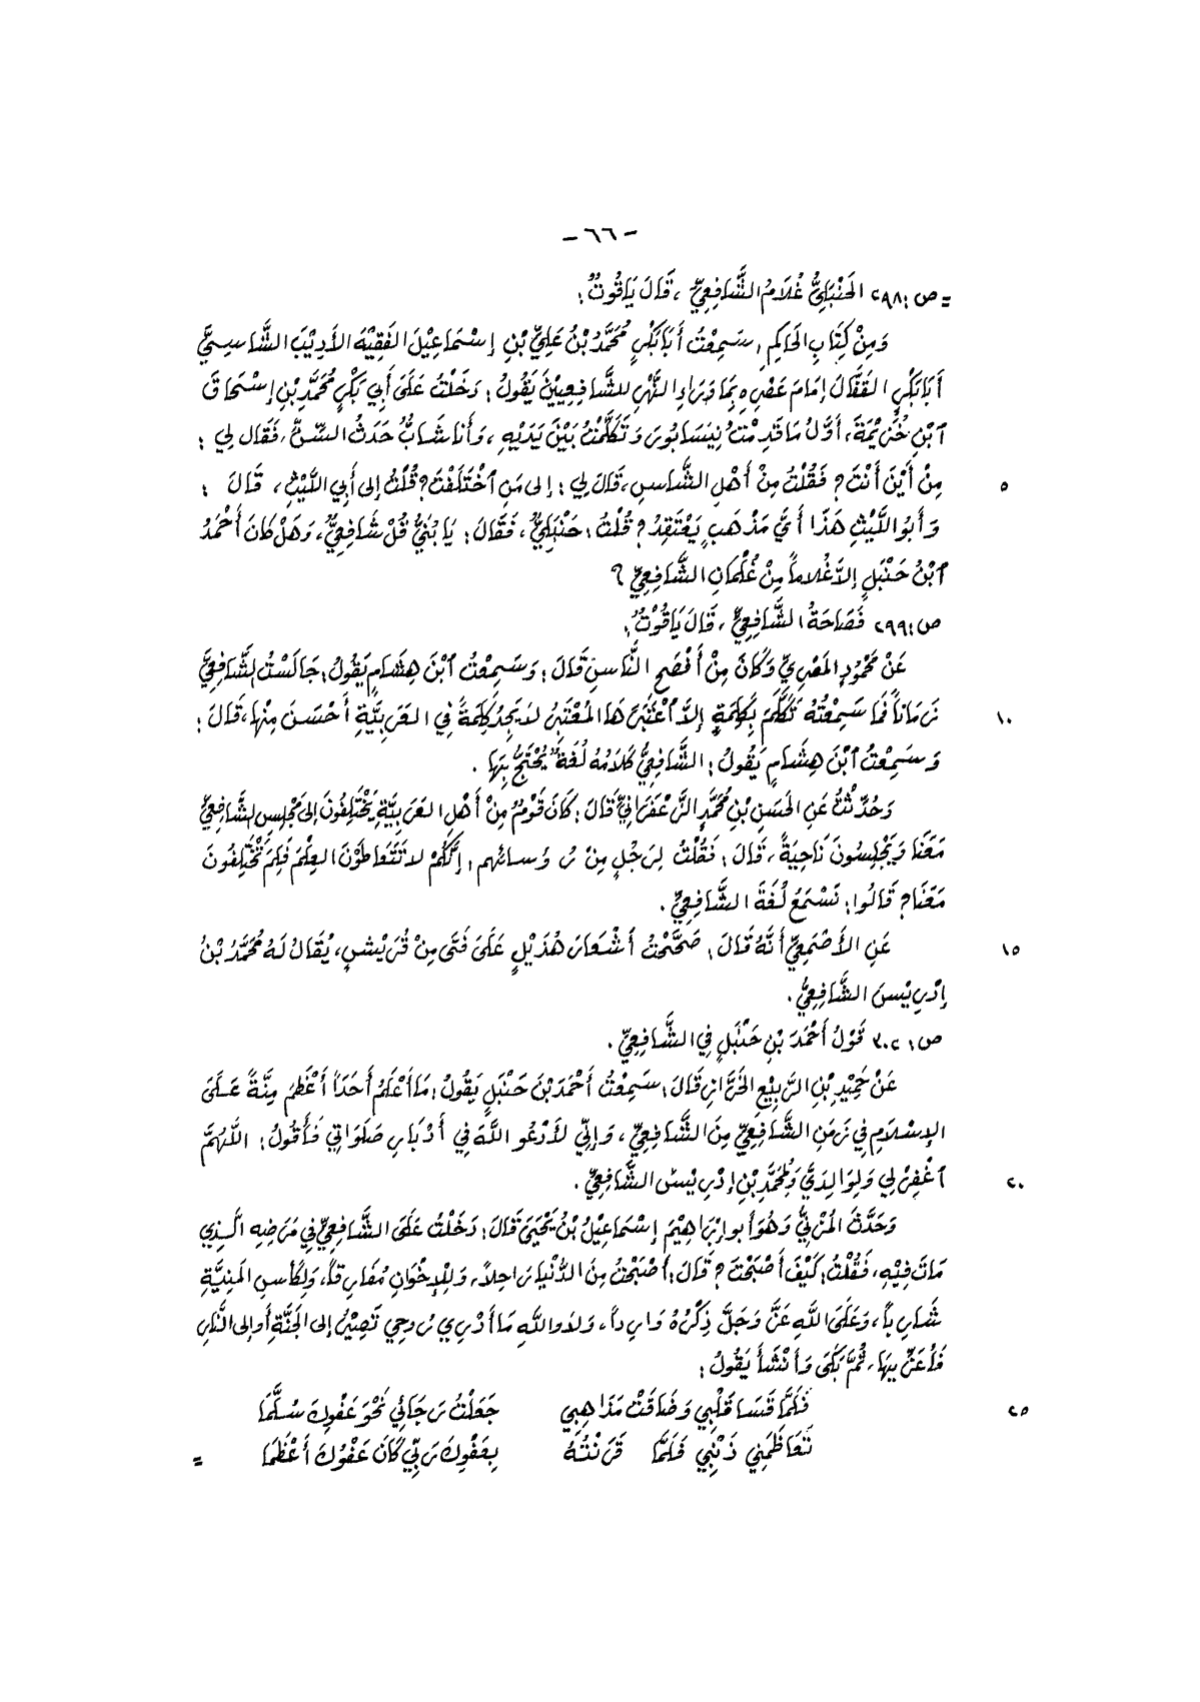 - ٦٦ -
= ص: ٢٩٨ الحَنْبَلِيُّ غُلَامُ الشَّافِعِيِّ، قَالَ يَاقُوتٌ:
وَمِنْ كِتَابِ الحَاكِمِ، سَمِعْتُ أَبَابَكْرٍ مُحَمَّدُ بْنُ عَلِيِّ بْنِ إِسْمَاعِيْلَ الفَقِيْهَ الأَدِيْبَ الشَّاشِيَّ
أَبَابَكْرٍ القَفَّالَ إِمَامَ عَصْرِهِ بِمَا وَرَاءِ النَّهْرِ لِلشَّافِعِيِّيْنَ يَقُولُ: دَخَلْتُ عَلَى أَبِي بَكْرٍ مُحَمَّدِ بْنِ إِسْحَاقَ
ٱبْنِ خُزَيْمَةَ، أَوَّلُ مَا قَدِمْتُ نِيْسَابُورَ وَتَكَلَّمْتُ بَيْنَ يَدَيْهِ، وَأَنَا شَابٌّ حَدَثُ السِّنِّ، فَقَال لِي:
٥ مِنْ أَيْنَ أَنْتَ؟ فَقُلْتُ مِنْ أَهْلِ الشَّاشِ، قَالَ لِي: إلى مَنِ ٱخْتَلَفْتَ؟ قُلْتُ إلى أَبِي اللَّيْثِ، قَالَ :
وَأَبُو اللَّيْثِ هَذَا أَيَّ مَذْهَبٍ يَعْتَقِدُ؟ قُلْتُ: حَنْبَلِيٌّ، فَقَالَ: يَا بُنَيَّ قُلْ شَافِعِيٌّ، وَهَلْ كَانَ أَحْمَدُ
ٱبْنُ حَنْبَلٍ إِلاَّ غُلَاماً مِنْ غُلْمَانِ الشَّافِعِيِّ؟
ص: ٢٩٩ فَصَاحَةُ الشَّافِعِيِّ، قَالَ يَاقُوْتٌ:
عَنْ مَحْمُودٍ المَصْرِيِّ وَكَانَ مِنْ أَفْصَحِ النَّاسِ قَالَ: وَسَمِعْتُ ٱبْنَ هِشَامٍ يَقُولُ: جَالَسْتُ الشَّافِعِيَّ
١٠ زَمَاناً فَمَا سَمِعْتُهُ تَكَلَّمَ بِكَلِمَةٍ إِلاَّ ٱعْتَبَرَهَا المُعْتَبِرُ لَا يَجِدُ كَلِمَةً فِي العَرَبِيَّةِ أَحْسَنَ مِنْهَا، قَالَ:
وَسَمِعْتُ ٱبْنَ هِشَامٍ يَقُولُ: الشَّافِعِيُّ كَلَامُهُ لُغَةٌ يُحْتَجُّ بِهَا.
وَحُدِّثْتُ عَنِ الحَسَنِ بْنِ مُحَمَّدٍ الزَّعْفَرَانِيِّ قَالَ: كَانَ قَوْمٌ مِنْ أَهْلِ العَرَبِيَّةِ يَخْتَلِفُونَ إِلَى مَجْلِسِ الشَّافِعِيِّ
مَعَنَا وَيَجْلِسُونَ نَاحِيَةً، قَالَ: فَقُلْتُ لِرَجُلٍ مِنْ رُؤسائهم: إِنَّكُمْ لا تَتَعَاطَوْنَ العِلْمَ فَلِمَ تَخْتَلِفُونَ
مَعَنَا؟ قَالُوا: نَسْمَعُ لُغَةَ الشَّافِعِيِّ.
١٥ عَنِ الأَصْمَعِيِّ أَنَّهُ قَالَ: صَحَّحْتُ أَشْعَارَ هُذَيْلٍ عَلَى فَتًى مِنْ قُرَيْشٍ، يُقَالُ لَهُ مُحَمَّدُ بْنُ
إِدْرِيْسَ الشَّافِعِيُّ.
ص: ٣٠٢ قَوْلُ أَحْمَدَ بْنِ حَنْبَلٍ فِي الشَّافِعِيِّ.
عَنْ حُمَيْدِ بْنِ الرَّبِيْعِ الخَزَّازِ قَالَ: سَمِعْتُ أَحْمَدَ بْنَ حَنْبَلٍ يَقُولُ: مَا أَعْلَمُ أَحَدَاً أَعْظَمَ مِنَّةً عَلَى
الإِسْلَامِ فِي زَمَنِ الشَّافِعِيِّ مِنَ الشَّافِعِيِّ، وَإِنِّي لأَدْعُو اللَّهَ فِي أَدْبَارِ صَلَوَاتِي فَأَقُولُ: اللَّهُمَّ
٢٠ ٱغْفِرْ لِي وَلِوَالِدَيَّ وَلِمُحَمَّدِ بْنِ إِدْرِيْسَ الشَّافِعِيِّ.
وَحَدَّثَ المُزَنِيُّ وَهُوَ أَبُو إِبْرَاهِيْمَ إِسْمَاعِيْلُ بْنُ يَحْيَى قَالَ: دَخَلْتُ عَلَى الشَّافِعِيِّ فِي مَرَضِهِ الَّذِي
مَاتَ فِيْهِ، فَقُلْتُ: كَيْفَ أَصْبَحْتَ؟ قَالَ: أَصْبَحْتُ مِنَ الدُّنْيَا رَاحِلاً، وَلِلْإِخْوَانِ مُفَارِقاً، وَلِكَأْسِ المَنِيَّةِ
شَارِباً، وَعَلَى اللَّهِ عَزَّ وَجَلَّ ذِكْرُهُ وَارِداً، وَلَا وَاللَّهِ مَا أَدْرِي رُوحِي تَصِيْرُ إلى الجَنَّةِ أَو إلى النَّارِ
فَأُعَزِّيهَا، ثُمَّ بَكَى وَأَنْشَأَ يَقُولُ:
٢٥ فَلَمَّا قَسَا قَلْبِي وَضَاقَتْ مَذَاهِبِي جَعَلْتُ رَجَائِي نَحْوَ عَفْوِكَ سُلَّمَا
تَعَاظَمَنِي ذَنْبِي فَلَمَّا قَرَنْتُهُ بِعَفْوِكَ رَبِّي كَانَ عَفْوُكَ أَعْظَمَا =